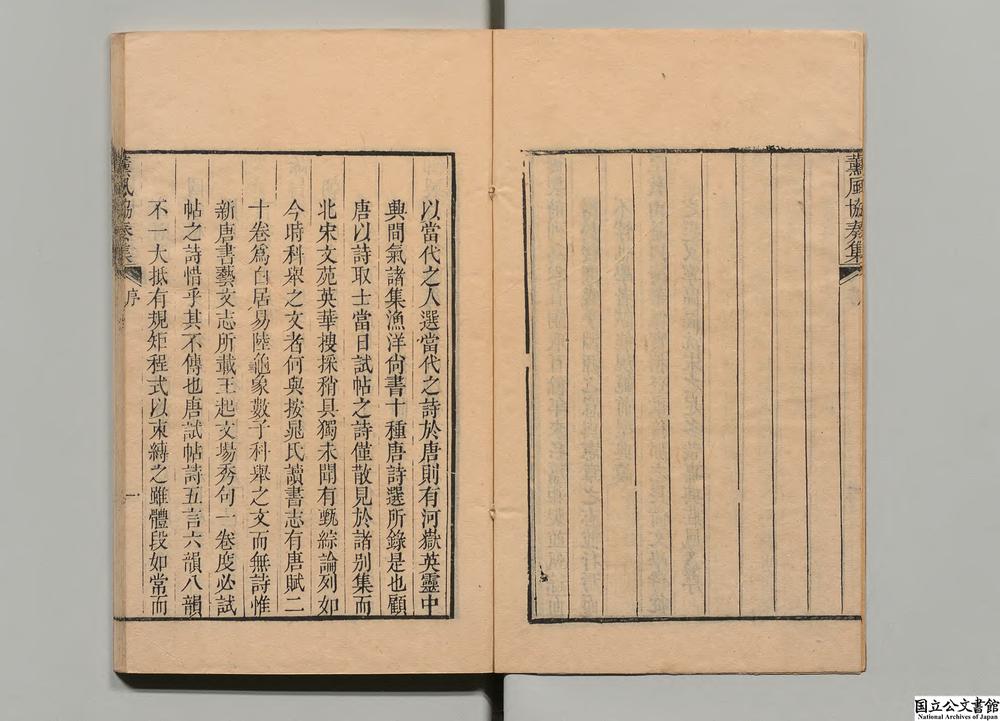 薰風協奏集
以當代之人選當代之詩於唐則有河嶽英靈中
興間氣諸集漁洋尙書十種唐詩選所錄是也顧
唐以詩取士當日試帖之詩僅散見於諸別集而
北宋文苑英華搜採稍具獨未聞有甄綜論列如
今時科舉之文者何與按晁氏讀書志有唐賦二
十卷爲白居易陸龜象數子科舉之文而無詩惟
新唐書藝文志所載王起文場秀句一卷度必試
帖之詩惜乎其不傳也唐試帖詩五言六韻八韻
不一大抵有規矩程式以束縛之雖體段如常而
薰風協奏集
序
一
国立公文書館
National Archives of Japan